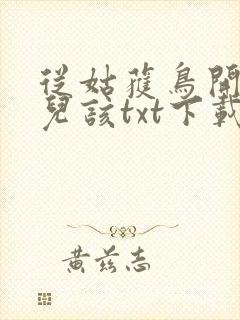 從姑獲鳥開
兒該txt下載
黃茲志